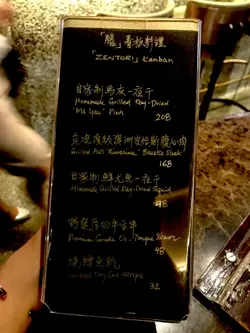 「膳」看板料理
「ZENTORI」Kanban
自家制馬友一夜干
Homemade Grilled Day-Dried
"Ma Yau" Fish
208
Grilled AUS "Riverina" Bavette Steak
168
自家制鮮尤魚一夜干
Homemade Grilled Day-Dried Squid
98
特選厚切牛舌串
Premium Grade Ox-Tongue Skewer
48
燒鱈魚乾
Grilled Dry Cod Stripes
32